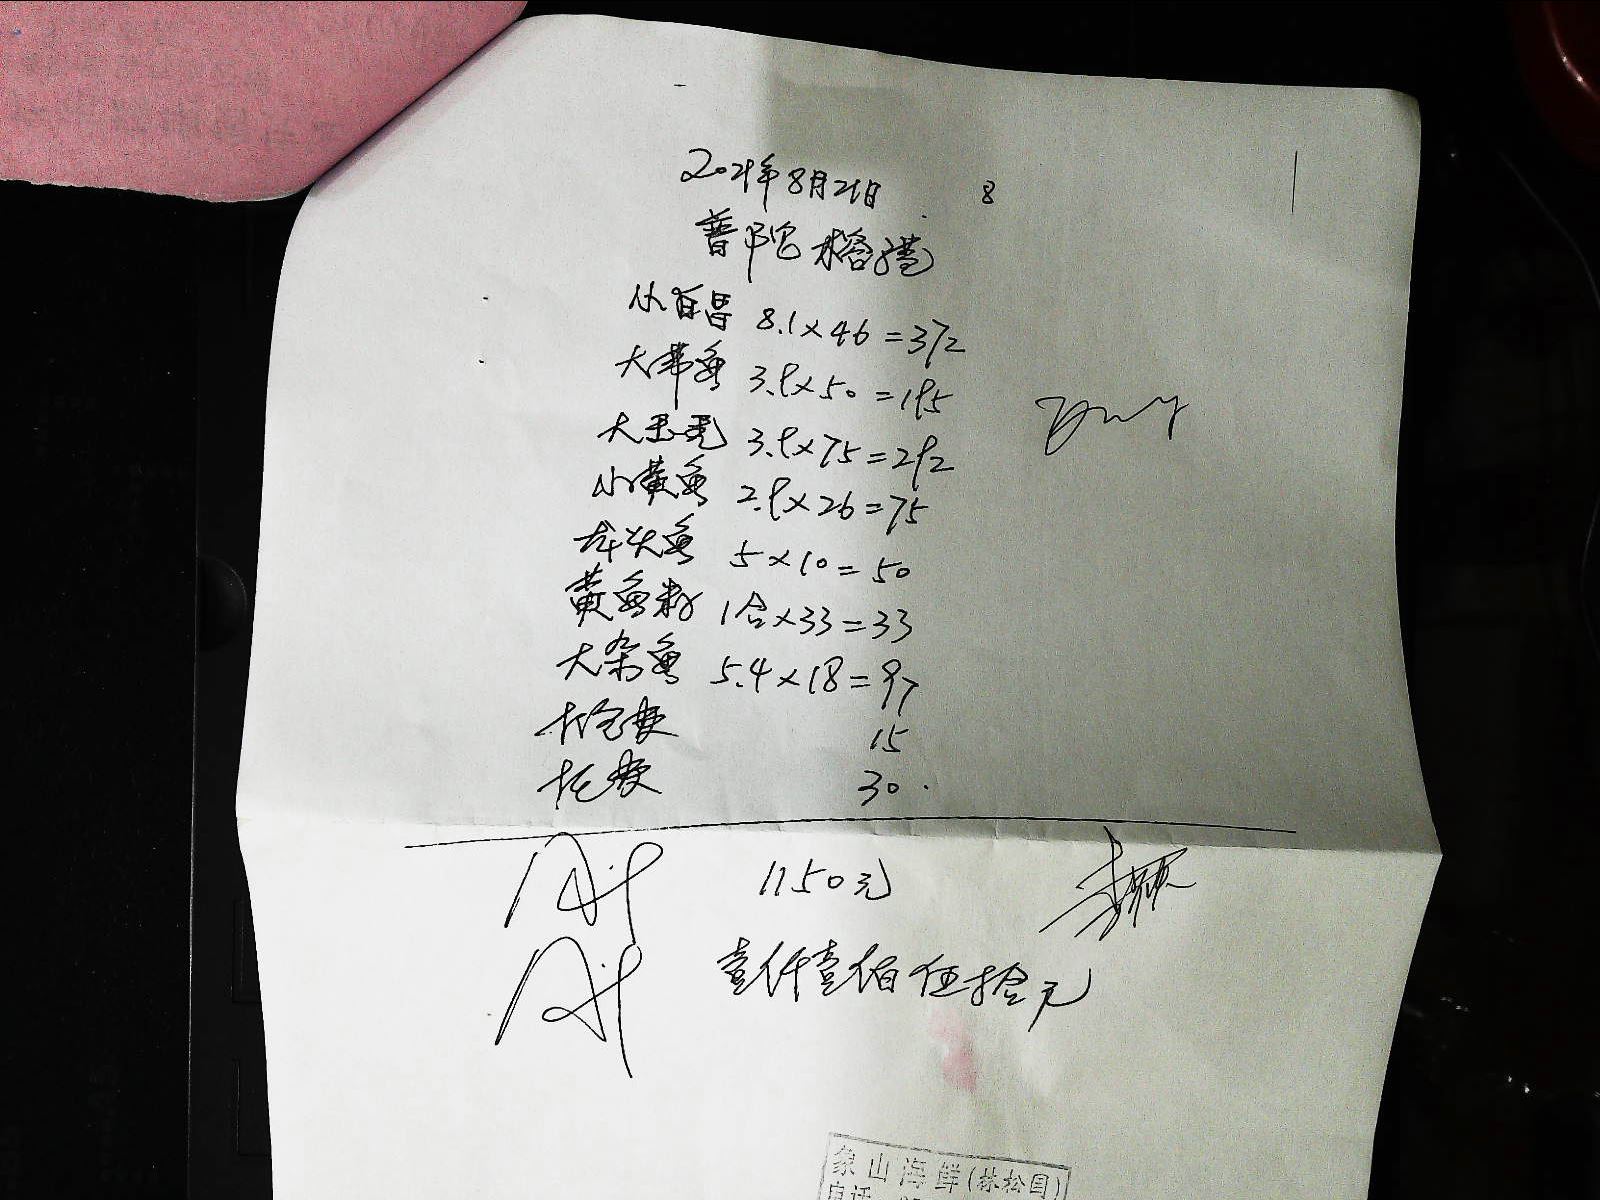 2021年8月21日 8
普陀榕港
小白昌 8.1×46=372
大带鱼 3.9×50=195
大玉秃 3.9×75=292
小黄鱼 2.9×26=75
龙头鱼 5×10=50
黄鱼籽 1合×33=33
大杂鱼 5.4×18=97
打包费 15
托费 30.
1150元
壹仟壹佰伍拾元
象山海鲜(林松国)
电话